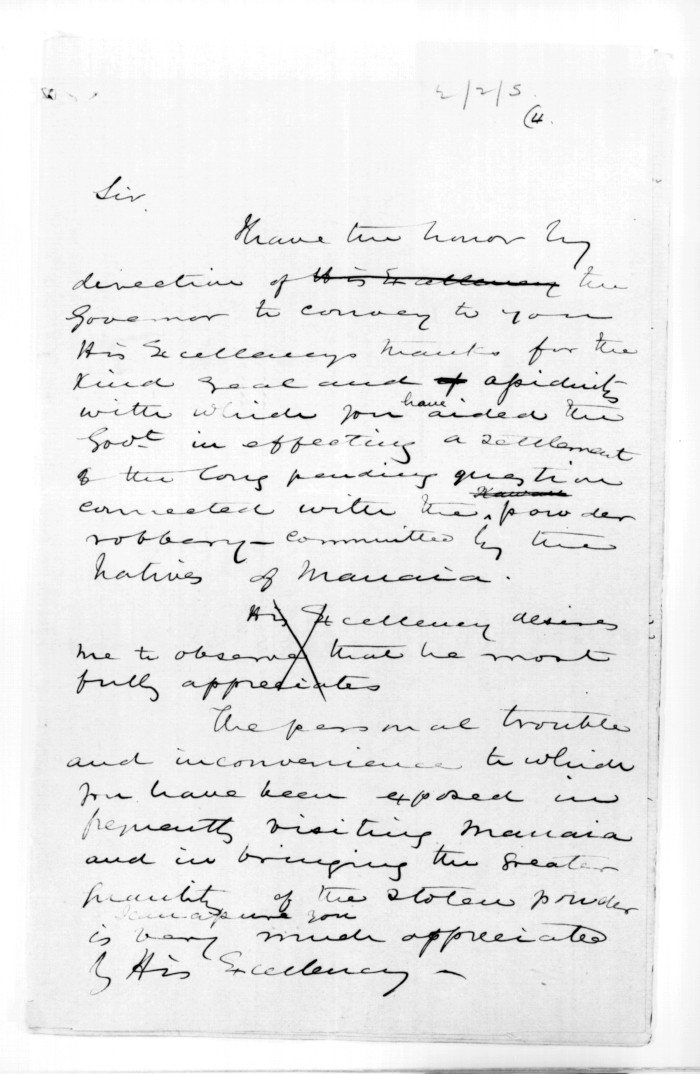 2/2/5.
(4.
Sir.
I have the honor by
direction of His Excellency the
Governor to convey to you
His Excellencys thanks for the
kind zeal and assiduity
with which you have aided the
Govt in effecting a settlement
of the long pending question
connected with the Kawau powder
robbery - committed by the
Natives of Manaia.
His Excellency desires
me to observe that he most
fully appreciates
The personal trouble
and inconvenience to which
you have been exposed in
frequently visiting Manaia
and in bringing the greater
quantity of the stolen powder
you
is very much appreciated
by His Excellency -